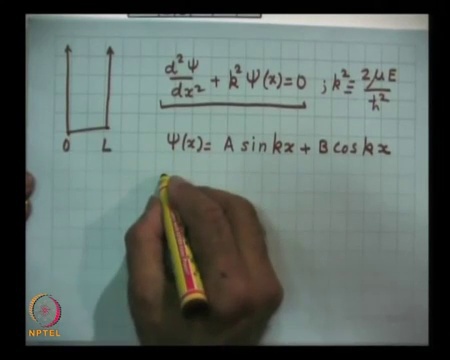 d²Ψ/dx² + k²Ψ(x)=0 ; k² ≡ 2μE/ħ²
0 L
Ψ(x)= A sin kx + B cos kx
NPTEL